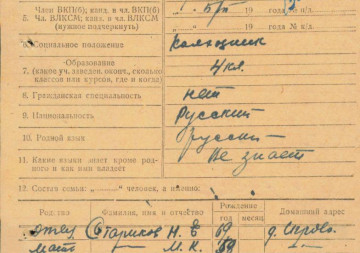 Член ВКП(б), канд. в чл. ВКП(б)
5. Член ВЛКСМ, канд. в чл. ВЛКСМ
(нужное подчеркнуть)
1. б/п 19 года № п/б.
19 года № к/д.
6. Социальное положение
Колхозник
7. Образование
(какое уч. заведен. оконч., сколько классов или курсов, где и когда)
4 кл.
8. Гражданская специальность
нет
9. Национальность
Русский
10. Родной язык
русский
11. Какие языки знает кроме родного и как ими владеет
Не знает
12. Состав семьи: „ “ человек, а именно:
Родство Фамилия, имя и отчество Рождение Домашний адрес
год месяц
отец Стариков Н. Е 69 д.
мать М. К.